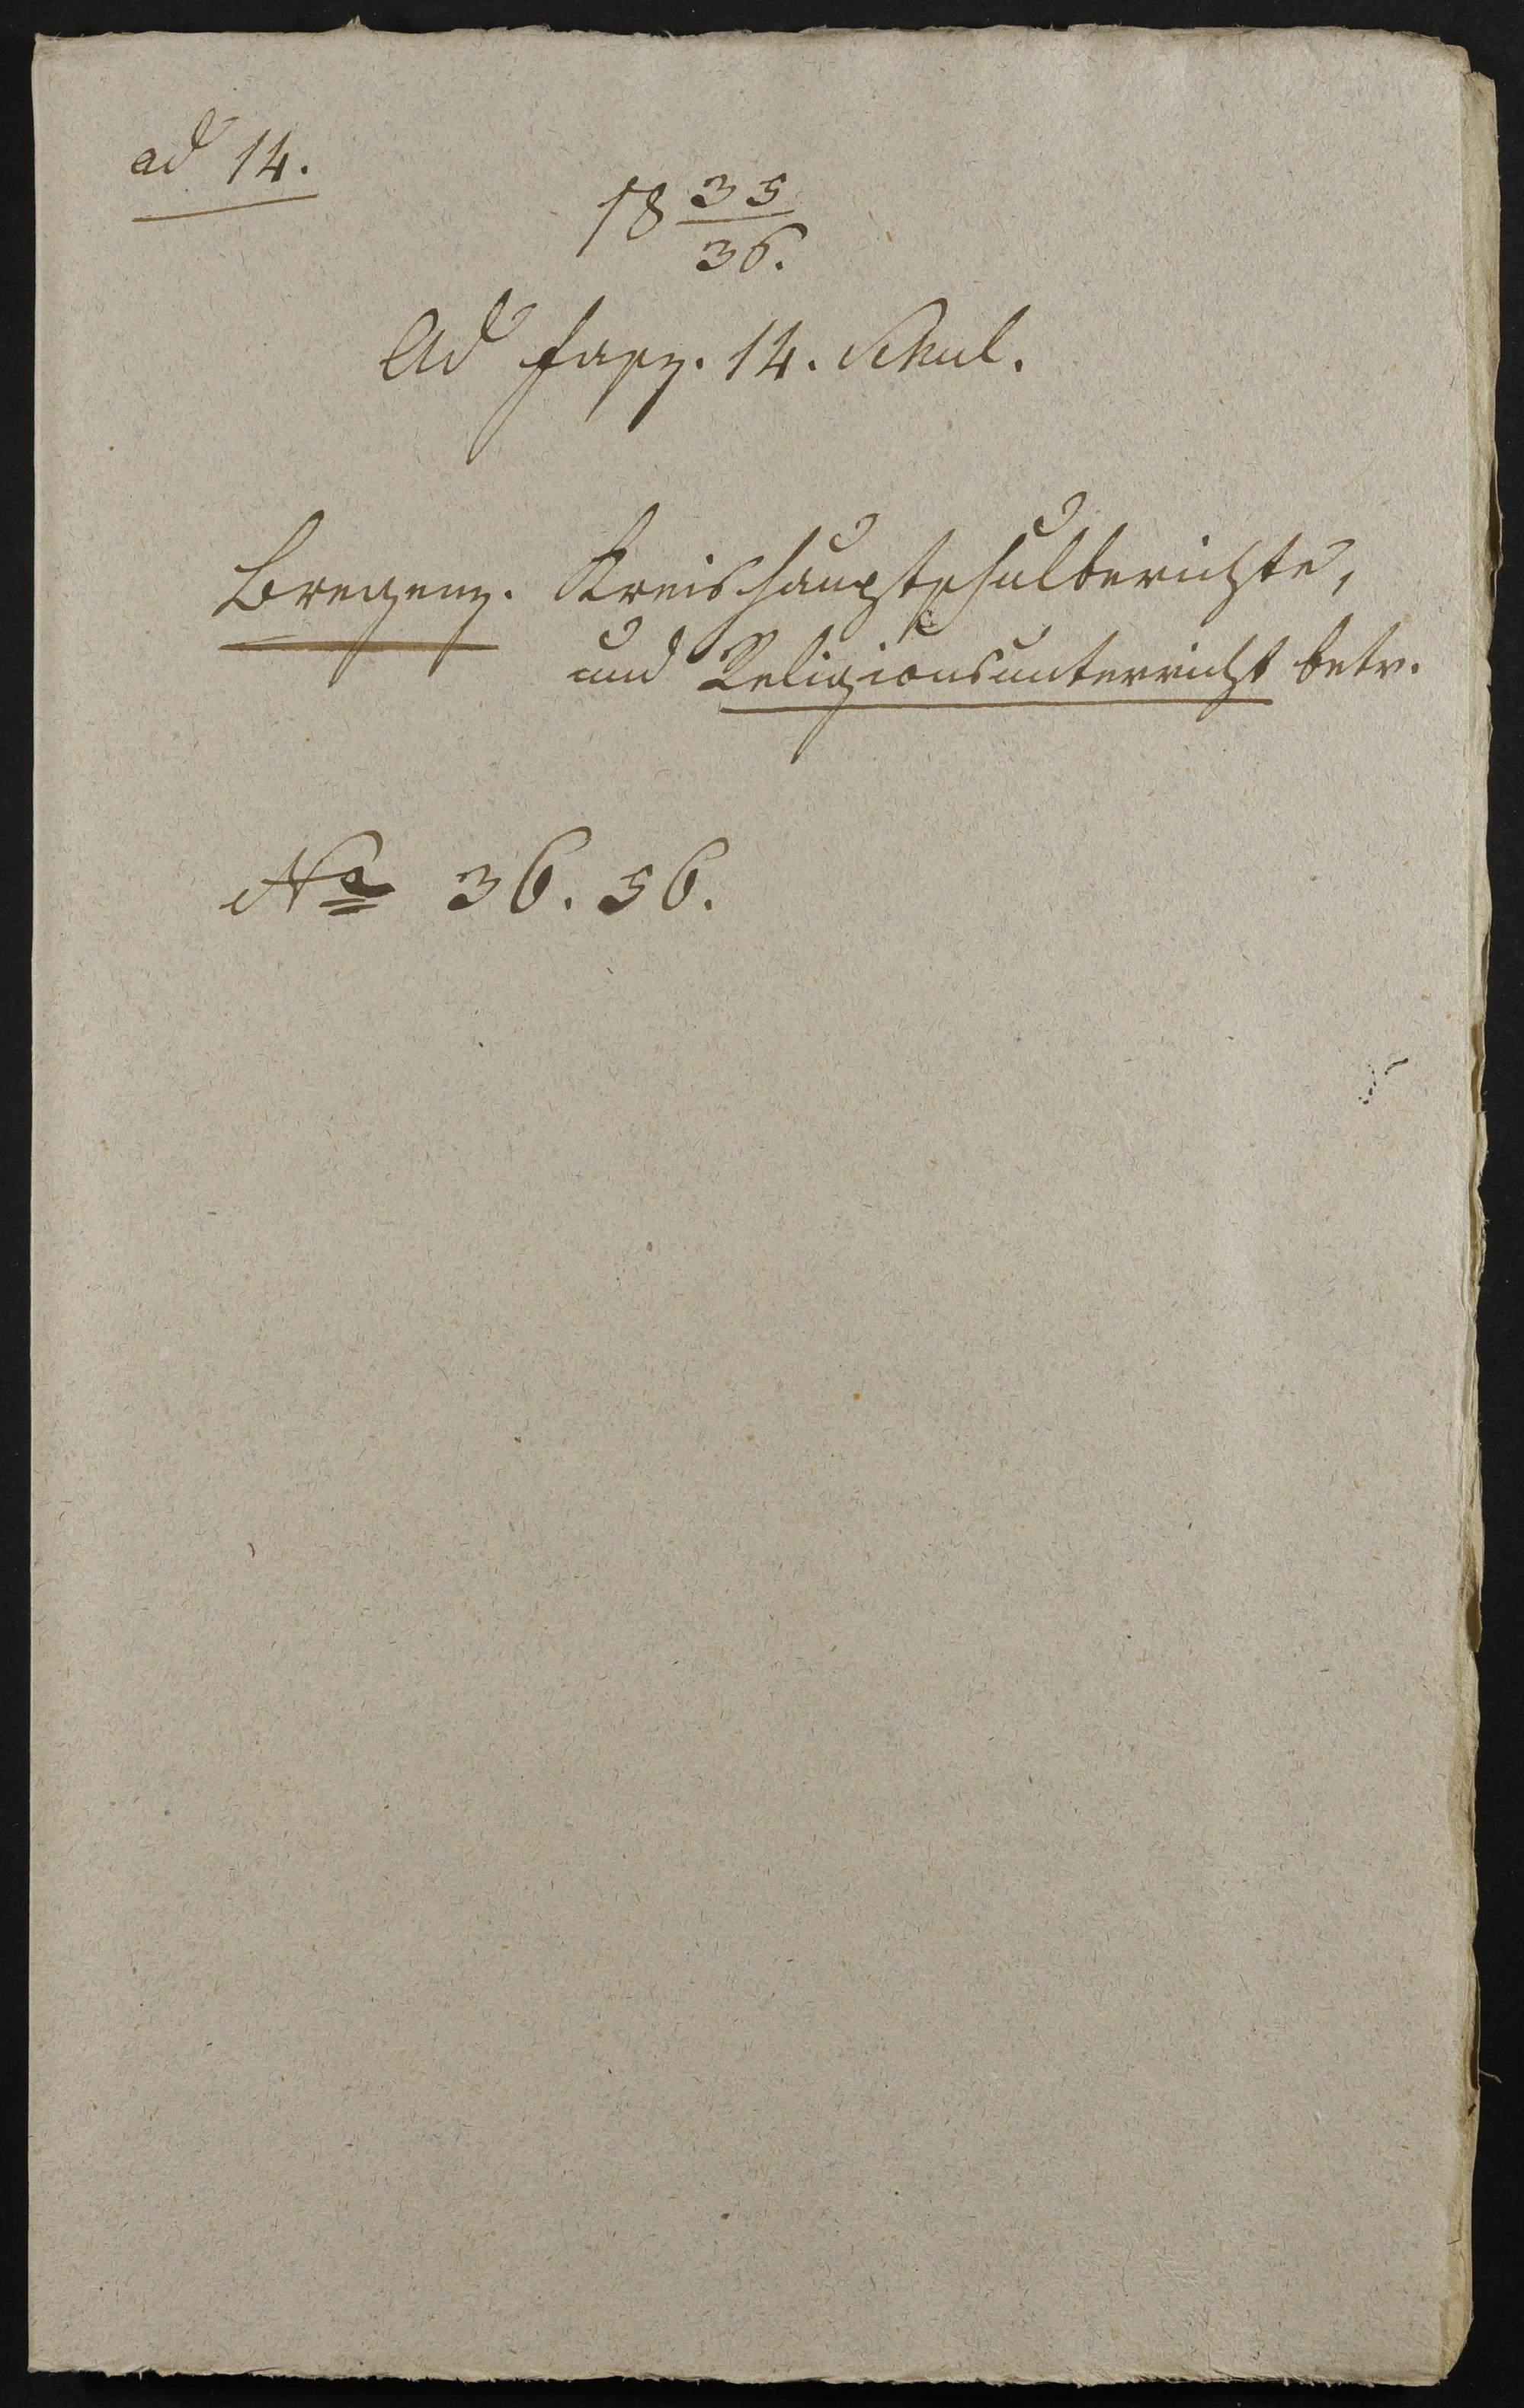 ad 14.
18 35/36.
Ad fasz. 14. Schul.
Bregenz. Kreishauptschulberichte,
und Religionsunterricht betr.
No 36. 56.